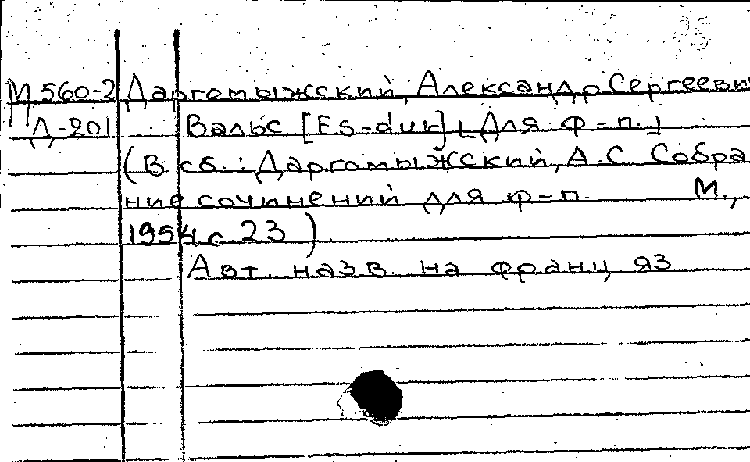 М 560-2 Даргомыжский, Александр Сергееви
Д-201 Вальс [Es-dur] [Для ф-п.]
(В сб.: Даргомыжский, А.С. Собра
ние сочинений для ф-п. М.,
1954, с. 23)
Авт. назв. на франц. яз